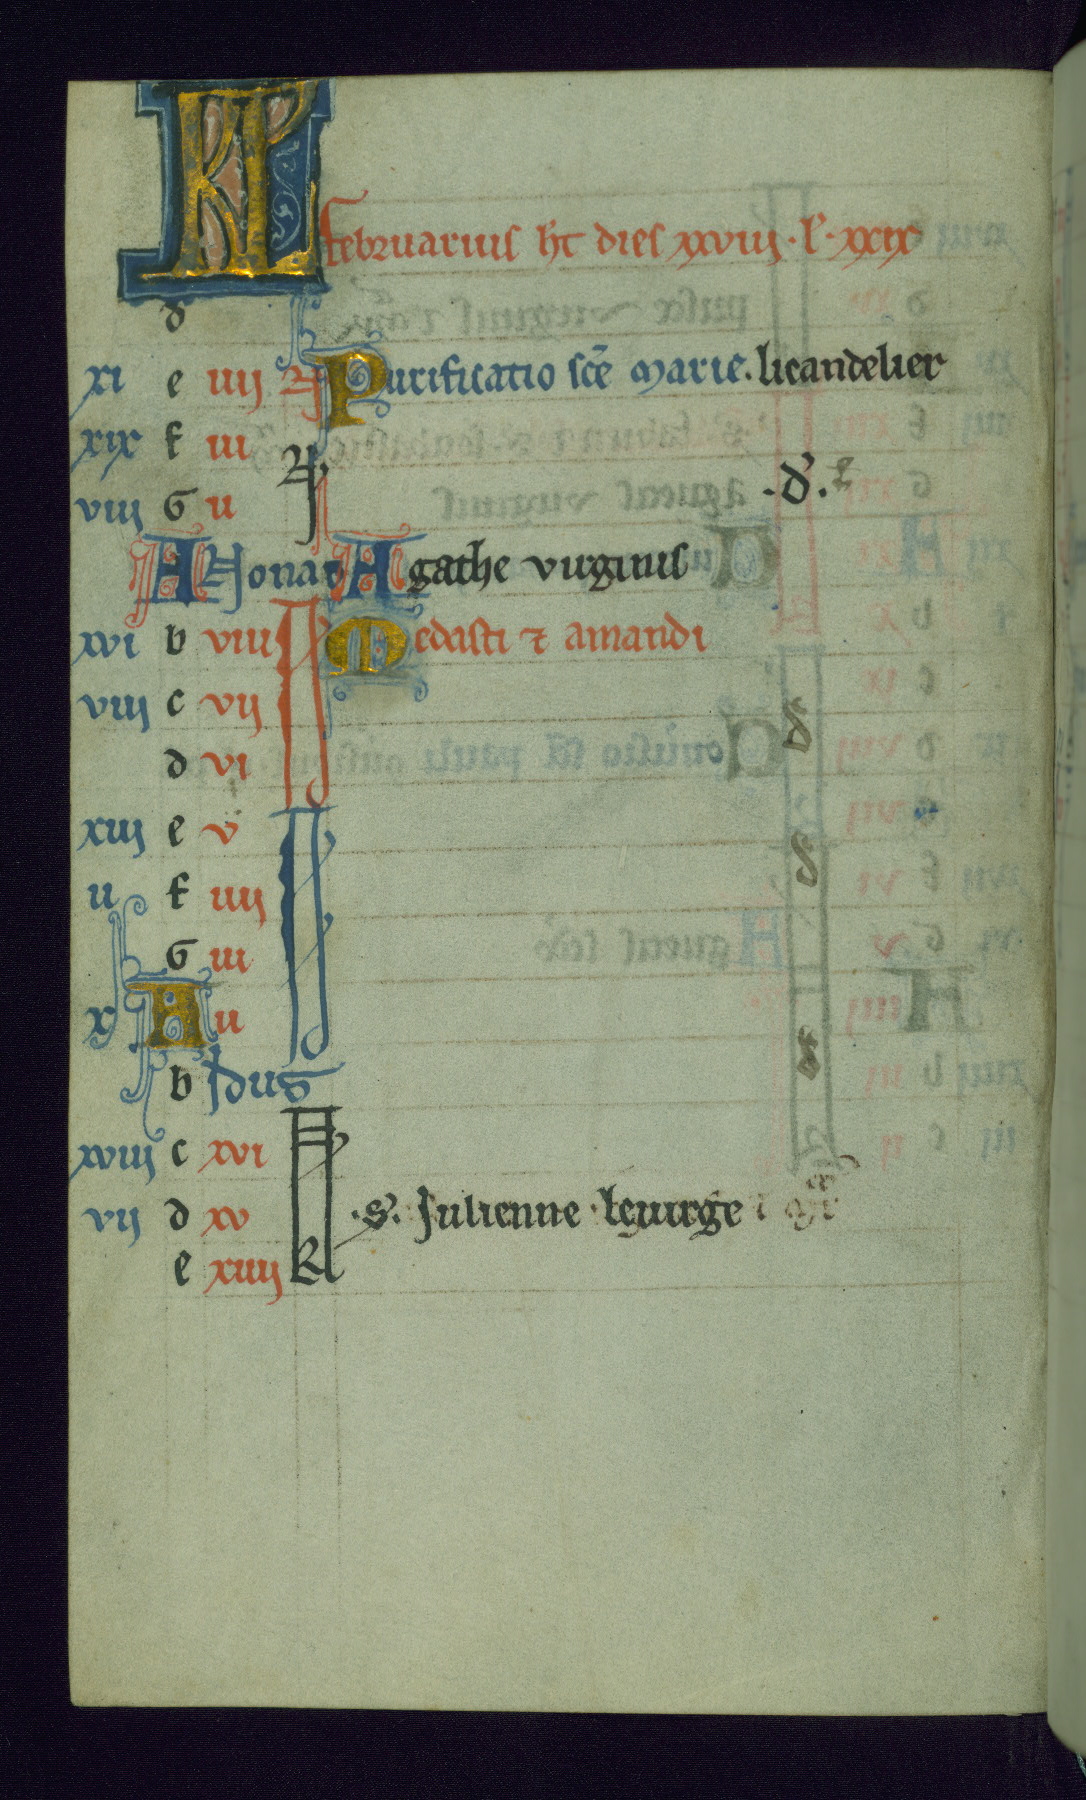 KL februarius ht dies xxviii · l' · xxix
d
xi e iiii N Purificatio sce Marie. licandelier
xix f iii N
viii G ii .d'.
A Nonas Agathe virginis
xvi b viii Vedasti et amandi
viii c vii
d vi
xiii e v
ii f iiii
G iii
x A ii
b Idus
xviii c xvi
vii d xv .S'. Julienne levirge
e xiiii